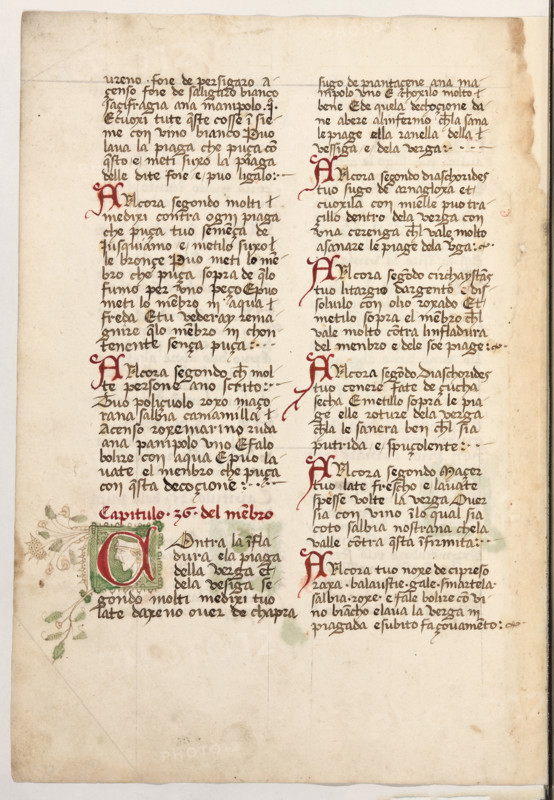 ureno · foie de persigaro a
censo foie de saligaro bianco
saçifragia ana manipolo .j.
Ecuoxi tute q̃ste cosse ĩ sie
me con uino bianco Puo
laua la piaga che puça cõ
q̃sto e meti suxo la piaga
delle dite foie e puo ligalo:
ANcora segondo molti
medixi contra ogni piaga
che puça tuo semeça de
Iusquiamo e metilo suxo
le bronçe Puo meti lo mẽ
bro che puça sopra de q̃lo
fumo per uno peço Epuo
meti lo mẽbro in aqua
freda Etu vederay rema
gnire q̃lo mẽbro in chon
tenente sença puça:
ANcora segondo ch̃ mol
te persone ano scrito:
Tuo poliçuolo roxo maço
rana salbia camamilla
Acenso roxemarino ruda
ana panipolo vno E falo
bolire con aqua Epuo la
uate el menbro che puça
con q̃sta decoçione:
Capitulo · 36 · del mẽbro
COntra la ĩfla
dura ela piaga
della verga et
dela vesiga se
gondo molti medixi tuo
late daxeno ouer de chapra
sugo de piantacene ana ma
nipolo vno E choxilo molto
bene Ede quela dechocione da
ne abere alinfermo ch̃la sana
le piage ella ranella della
vessiga e dela verga:
ANcora segondo diaschorides
tuo sugo de arnagloxa et
cuoxila con mielle puo tra
çillo dentro dela verga con
vna cerenga ch̃l vale molto
asanare le piage dela ṽga:
ANcora segõdo
tuo litargio dargento e dis
soluilo con olio roxado Et
metilo sopra el mẽbro ch̃l
vale molto cõtra linfladura
del menbro e dele soe piage:
ANcora segõdo diaschorides
tuo cenere fate de çucha
secha E metillo sopra le pia
ge elle roture dela verga
ch̃la le sanera ben ch̃l sia
putrida e spuçolente:
ANcora segondo Maçer
tuo late frescho e lauate
spesse volte la verga Ouer
sia con vino ĩlo qual sia
coto salbia nostrana chela
valle cõtra q̃sta ĩfirmita:
ANcora tuo noxe de cipreso
raxa · balaustie · gale · smartela
salbia · roxe · e fale bolire cõ vi
no biãcho elaua la verga in
piagada e subito fa çouamẽto: